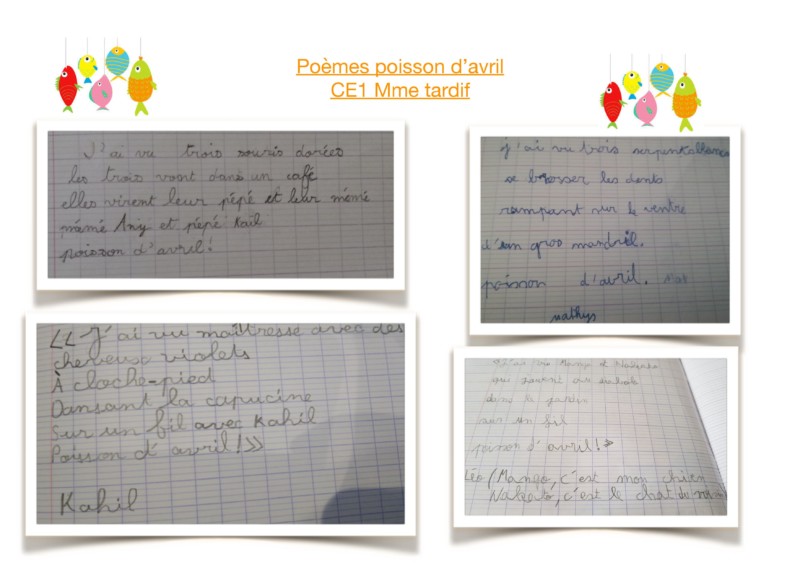 Poèmes poisson d'avril
CE1 Mme tardif
J'ai vu trois souris dorées
les trois vont dans un café
elles virent leur pépé et leur mémé
mémé Any et pépé Kail
poisson d'avril!
j'ai vu trois
se brosser les dents
rampant sur le ventre
d'un gros mandril.
poisson d'avril.
mathys
« J'ai vu maîtresse avec des
cheveux violets
À cloche-pied
Dansant la capucine
Sur un fil avec Kahil
Poisson d'avril! »
Kahil
J'ai vu Mango et
qui
dans le jardin
sur un fil
poisson d'avril! »
Léo (Mango, c'est mon chien
c'est le chat du